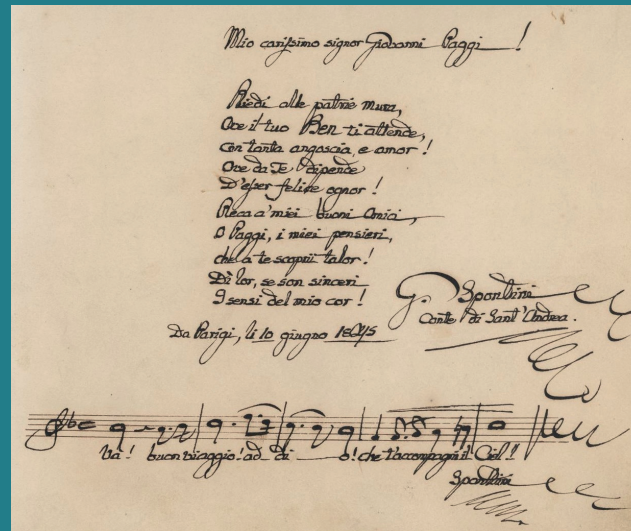 Mio carissimo signor Giovanni Paggi!
Riedi alle patrie mura,
Ove il tuo Ben ti attende,
con tanta angoscia, e amor!
Ove da Te dipende
D'esser felice ognor!
Reca a' miei buoni Amici,
O Paggi, i miei pensieri,
che a te scoprii talor!
Di lor, se son sinceri
I sensi del mio cor!
G. Spontini
Conte di Sant'Andrea.
Da Parigi, li 10 giugno
Va! buon viaggio! ad di o! che t'accompagni il Ciel!!
Spontini